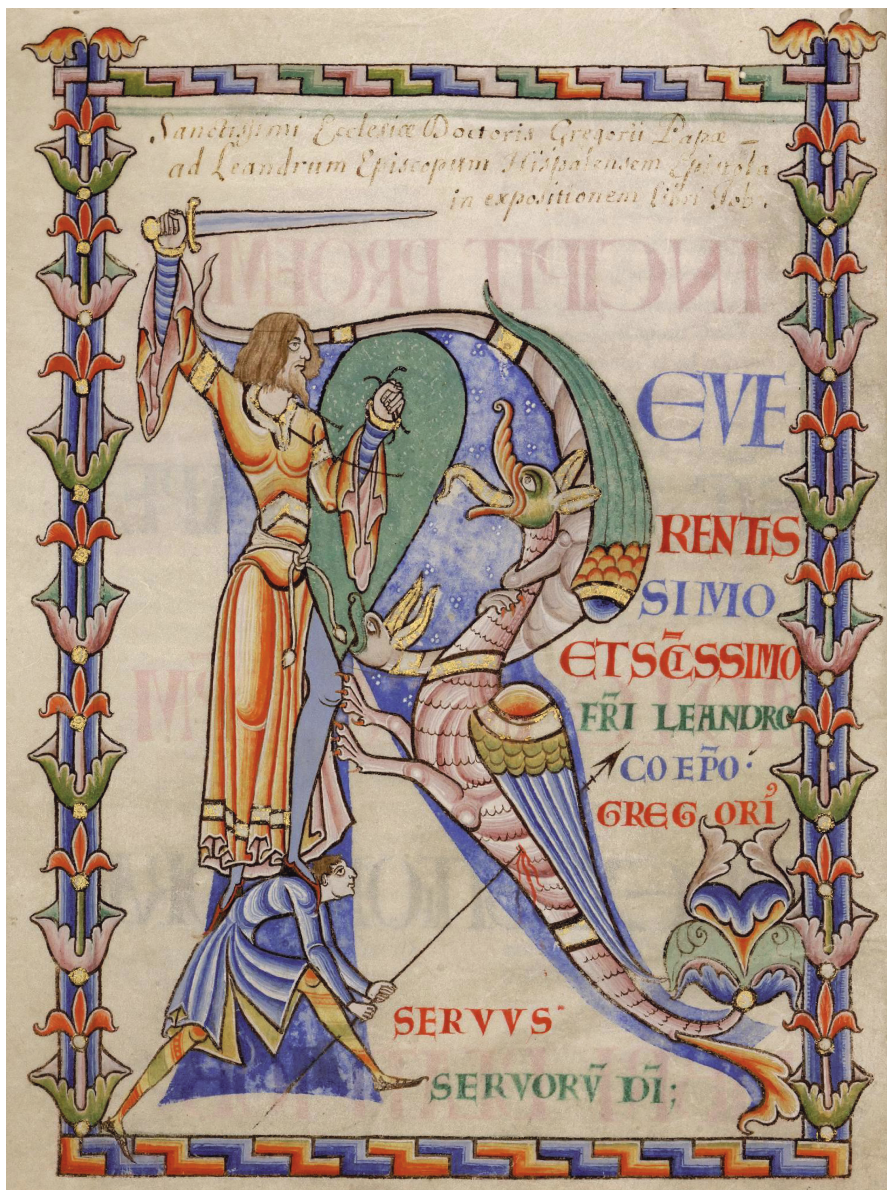 Sanctissimi Ecclesiæ Doctoris Gregorii Papæ
ad Leandrum Episcopum Hispalensem Epistola
in expositionem libri Iob.
R
EVE
RENTIS
SIMO
ET SC̃ISSIMO
FR̃I LEANDRO
COEP̃O·
GREGORIꝰ
SERVVS
SERVORṼ D̃I;